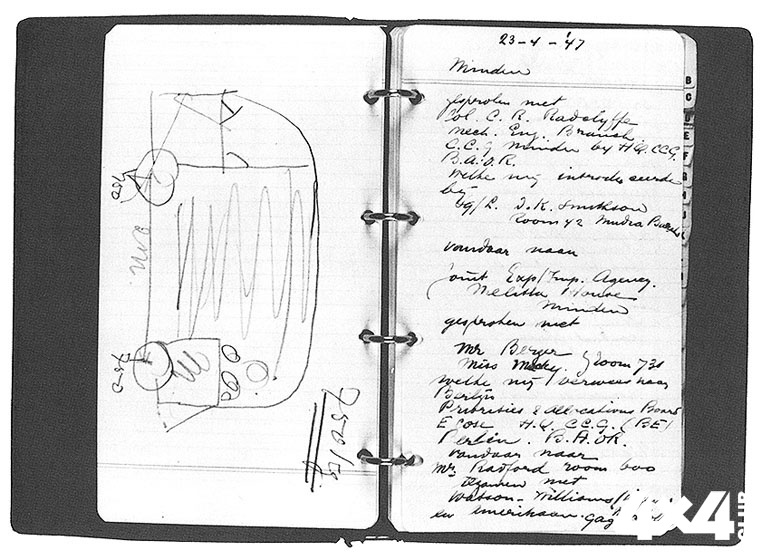 750
750
750 kg
23-4-'47
Minden
gesproken met
Col. C. R. Radclyffe
Mech. Eng. Branch
C.C.G Minden by H.Q. C.C.G.
B.A.O.R.
welke mij introduceerde
bij
Room 42
vandaar naar
Joint Exp/Imp. Agency.
Melitta House
Minden
gesproken met
Mr Berger
Miss Room 731
welke mij verwees naar
Berlijn
Priorities & Allocations Board
H.Q. C.C.G. (BE)
Berlin. B.A.OR.
vandaar naar
Mr. Radford room 600
tezamen met
Watson-Williams
en Amerikaan
B
C
E
F
4x4
CLUB